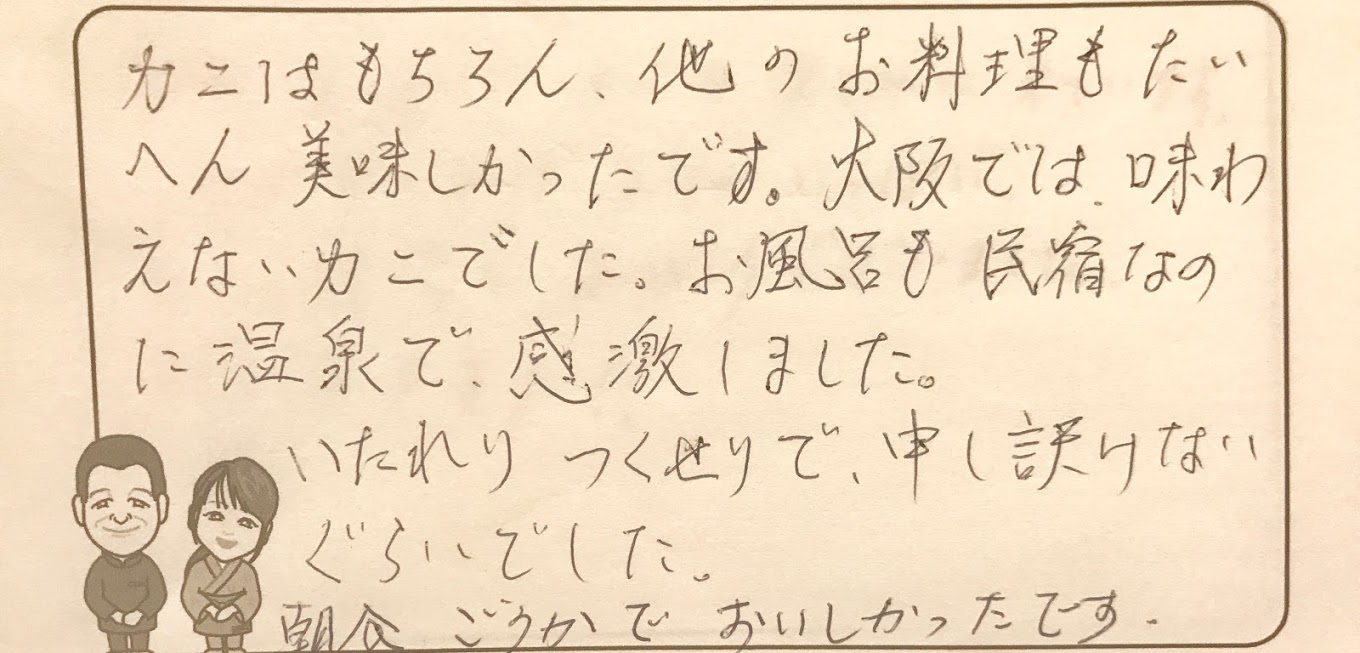 カニはもちろん、他のお料理もたい
へん美味しかったです。大阪では、味わ
えないカニでした。お風呂も民宿なの
に温泉で、感激しました。
いたれりつくせりで、申し訳けない
ぐらいでした。
朝食ごうかでおいしかったです.